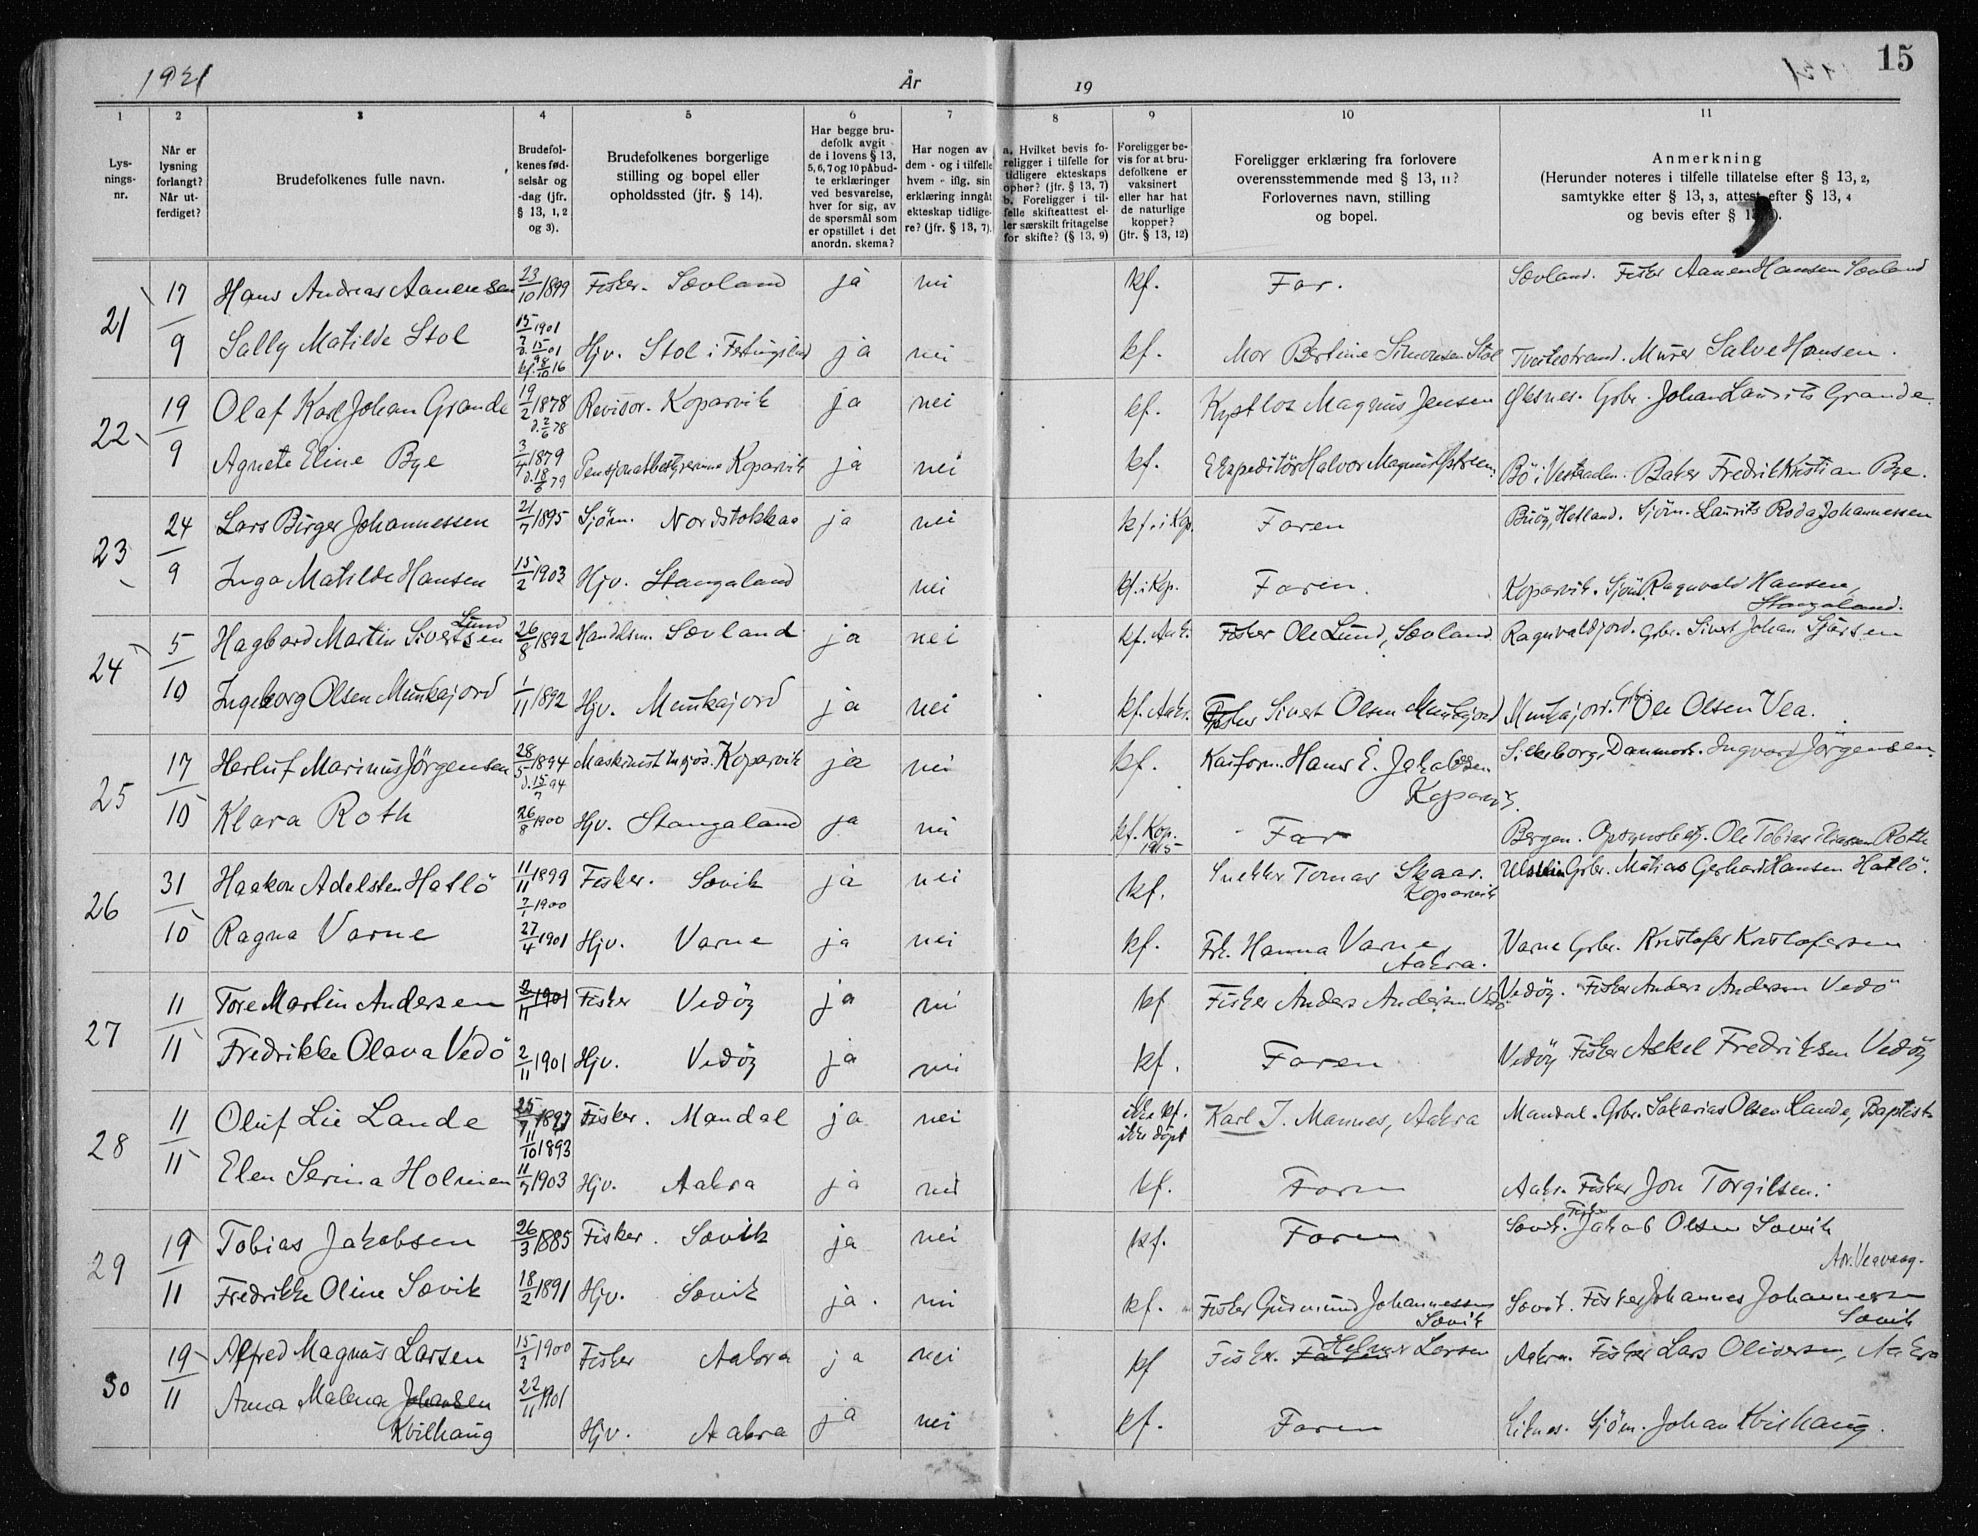 1921 År 19 1921 15
1 2 3 4 5 6 7 8 9 10 11
Lysningsnr.
Når er lysning forlangt? Når utferdiget?
Brudefolkenes fulle navn.
Brudefolkenes fødselsår og -dag (jfr. § 13, 1, 2 og 3).
Brudefolkenes borgerlige stilling og bopel eller opholdssted (jfr. § 14).
Har begge brudefolk avgit de i lovens § 13, 5, 6, 7 og 10 påbudte erklæringer ved besvarelse, hver for sig, av de spørsmål som er opstillet i det anordn. skema?
Har nogen av dem - og i tilfelle hvem - iflg. sin erklæring inngåt ekteskap tidligere? (jfr. § 13, 7).
a. Hvilket bevis foreligger i tilfelle for tidligere ekteskaps ophør? (jfr. § 13, 7) b. Foreligger i tilfelle skifteattest eller særskilt fritagelse for skifte? (§ 13, 9)
Foreligger bevis for at brudefolkene er vaksinert eller har hat de naturlige kopper? (jfr. § 13, 12)
Foreligger erklæring fra forlovere overensstemmende med § 13, 11? Forlovernes navn, stilling og bopel.
Anmerkning (Herunder noteres i tilfelle tillatelse efter § 13, 2, samtykke efter § 13, 3, attest efter § 13, 4 og bevis efter § 13,
21 17/9 Hans Andreas Aanensen 23/10 1899 Fisker. Sævland ja nei kf. Far. Sævland. Fisker Aanen Hansen Sævland
Sally Matilde Stol 15/7 1901 d. 15/9 01 kf. 8/10 16 Hjv. Stol i ja nei kf. Mor Bertine Simonsen Stol Tvedestrand. Murer Salve Hansen.
22 19/9 Olaf Karl Johan Grande 19/2 1878 d. 2/6 78 Revisor. Koparvik ja nei kf. Magnus Jensen Øksnes. Gbr. Johan Laurits Grande.
Agnete Eline Bye 3/4 1879 d. 18/6 79 Pensjonatbestyrerinne Koparvik ja nei kf. Ekspeditör Halvor Magnus Bö i Vesteraalen. Baker Fredrik Kristian Bye.
23 24/9 Lars Birger Johannessen 21/7 1895 Sjöm. Nordstokkaa ja nei kf. i Kop. Faren Buöy, Hetland. Sjöm. Laurits Roda Johannessen
Inga Matilde Hansen 15/2 1903 Hjv. Stangaland nei kf. i Kop. Faren. Koparvik. Sjöm. Ragnvald Hansen, Stangaland.
24 5/10 Hagbard Martin Sivertsen Lund 26/8 1892 Handelsm. Sævland ja nei kf. Aak. Fisker Ole Lund, Sævland. Ragnvaldjord. Gbr. Sivert Johan
Ingeborg Olsen Munkajord 1/11 1892 Hjv. Munkajord ja nei kf. Aakr. Fisker Sivert Olsen Munkajord Munkajord. Gbr. Ole Olsen Vea.
25 17/10 Herluf Marinus Jörgensen 28/5 1894 d. 15/7 94 Maskinist Koparvik ja nei kf. Kaiform. Hans E. Jakobsen Koparvik. Silkeborg, Danmark. Ingvard Jörgensen.
Klara Roth 26/8 1900 Hjv. Stangaland ja nei kf. Kop. 1915 Far Bergen. Opsynsbetj. Ole Tobias Roth
26 31/10 Haakon Adelsten Hatlö 11/11 1899 7/1 1900 Fisker. Sævik ja nei kf. Snekker Tomas Skaar. Koparvik Ulstein Gbr. Matias Gerhard Hansen Hatlö.
Ragna Varne 27/4 1901 Hjv. Varne ja nei kf. Frk. Hanna Varne, Aakra. Varne Gbr. Kristofer Kristofersen
27 11/11 Tore Martin Andersen 2/11 1901 Fisker Vedöy ja nei kf Fisker Anders Andersen Vedö Vedöy. Fisker Anders Andersen Vedö
Fredrikke Olava Vedö 2/11 1901 Hjv. Vedöy ja nei kf. Faren Vedöy Fisker Askel Fredriksen Vedöy
28 11/11 Oluf Lie Lande 25/7 1897 11/10 1893 Fisker. Mandal ja nei ikke kf. ikke döpt Karl J. Mannes, Aakra Mandal. Gbr. Sakarias Olsen Lande, Baptist
Elen Serina Holmen 11/7 1903 Hjv. Aakra ja nei kf. Faren Aakr. Fisker Jon Torgilsen.
29 19/11 Tobias Jakobsen 26/3 1885 Fisker. Sævik ja nei kf. Faren Sævik. Fisker Jakob Olsen Sævik
Adr. Veavaag.
Fredrikke Oline Sævik 18/2 1891 Hjv. Sævik ja. nei kf. Fisker Gudmund Johannessen Sævik Sævik. Fisker Johannes Johannesen Sævik
30 19/11 Alfred Magnus Larsen 15/2 1900 Fisker Aakra ja nei kf Fisker. Faren Helmer Larsen Aakra. Fisker Lars Oliversen, Aakra
Anna Malena Johansen Kvilhaug 22/11 1901 Hjv. Aakra ja nei kf. Faren Liknes. Sjöm. Johan Kvilhaug.